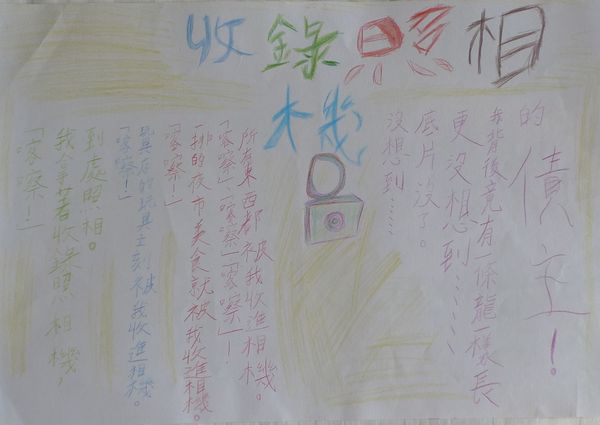 收錄照相
機
「喀嚓！」
我拿著收錄照相機，
到處照相。
「喀嚓！」
玩具店的玩具立刻被我收進相機。
「喀嚓！」
一排的夜市美食就被我收進相機。
「喀嚓」、「喀嚓」「喀嚓」！
所有東西都被我收進相機。
沒想到……
底片沒了。
更沒想到……
我背後竟有一條龍一樣長
的債主！